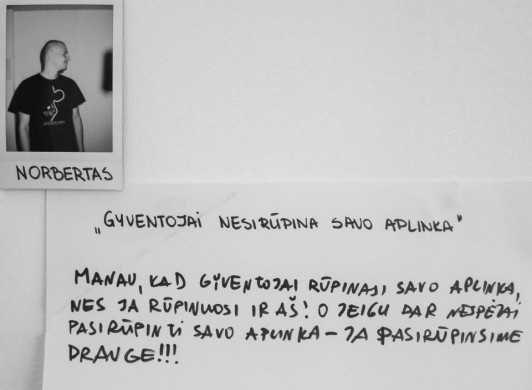 NORBERTAS
„GYVENTOJAI NESIRŪPINA SAVO APLINKA"
MANAU, KAD GYVENTOJAI RŪPINASI SAVO APLINKA,
NES JA RŪPINUOSI IR AŠ! O JEIGU DAR NESPĖJAI
PASIRŪPINTI SAVO APLINKA – JA PASIRŪPINSIME
DRAUGE!!!